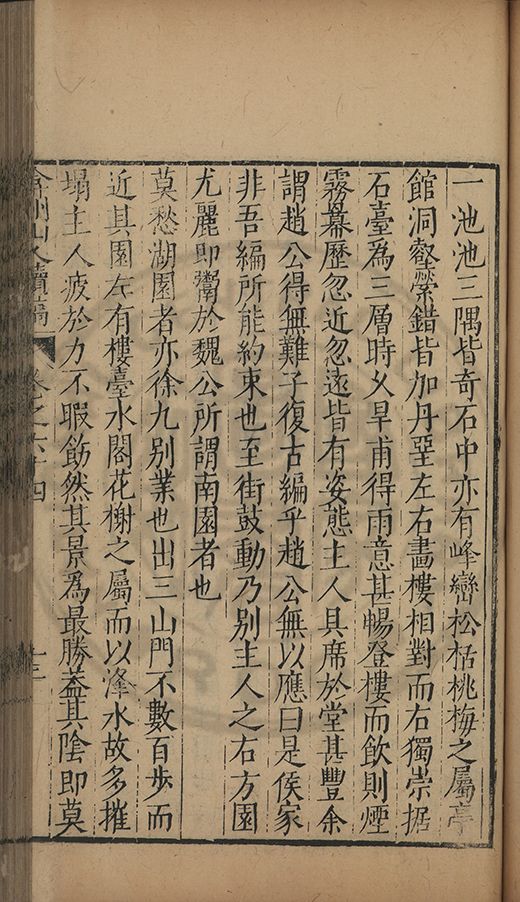 一池池三隅皆奇石中亦有峰巒松栝桃梅之屬亭
館洞壑縈錯皆加丹堊左右畫樓相對而右獨崇据
石臺為三層時久旱甫得雨意甚暢登樓而飲則煙
霧幕歷忽近忽遠皆有姿態主人具席於堂甚豐余
謂趙公得無難子復古編乎趙公無以應曰是侯家
非吾編所能約束也至街鼓動乃別主人之右方園
尤麗即鬻於魏公所謂南園者也
莫愁湖園者亦徐九別業也出三山門不數百步而
近其園左有樓臺水閣花榭之屬而以濱水故多摧
塌主人疲於力不暇飭然其景為最勝蓋其陰即莫
弇州山人續稿 卷之六十四